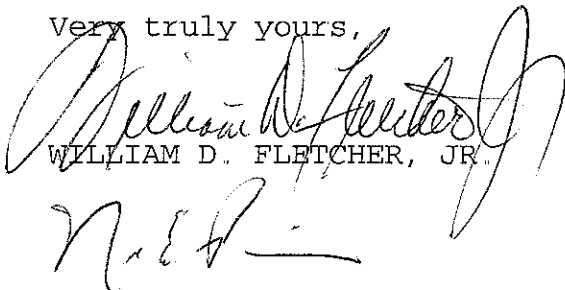 Very truly yours,
William D. Fletcher Jr
WILLIAM D. FLETCHER, JR.